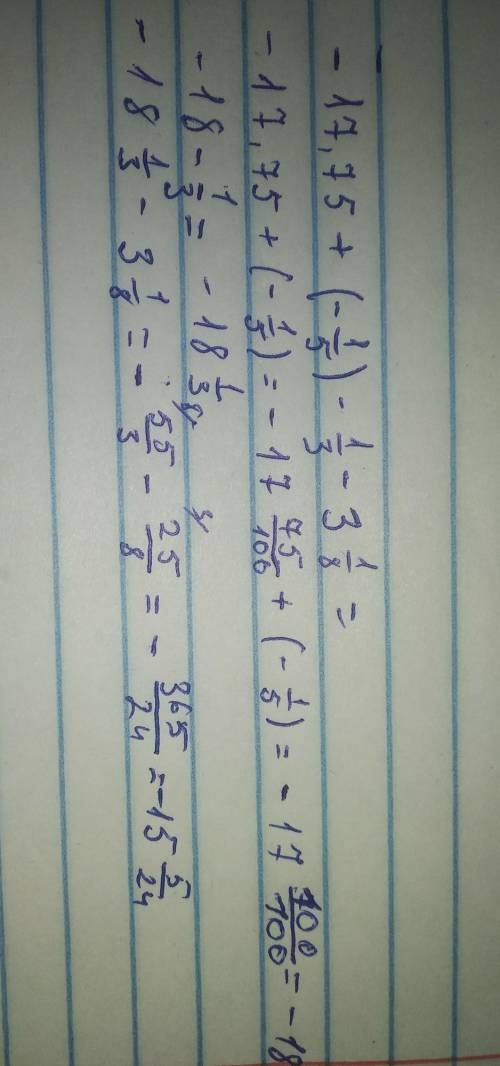 - 17,75 + (- 1/5) - 1/3 - 3 1/8 =
- 17,75 + (- 1/5) = - 17 75/100 + (- 1/5) = - 17 100/100 = - 18
- 18 - 1/3 = - 18 1/3
- 18 1/3 - 3 1/8 = - 55/3 - 25/8 = - 365/24 = - 15 5/24